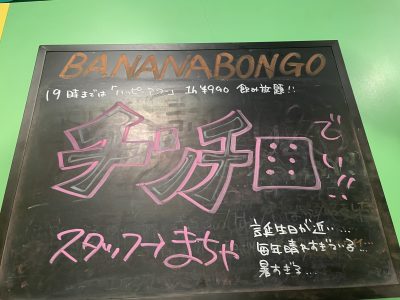 BANANABONGO
19時までは「ハッピーアワー」 1h ¥990 飲み放題!!
チンチ田でい!!
スタッフ→まちゃ
誕生日が近い…
毎年晴れすぎている…
暑すぎる…